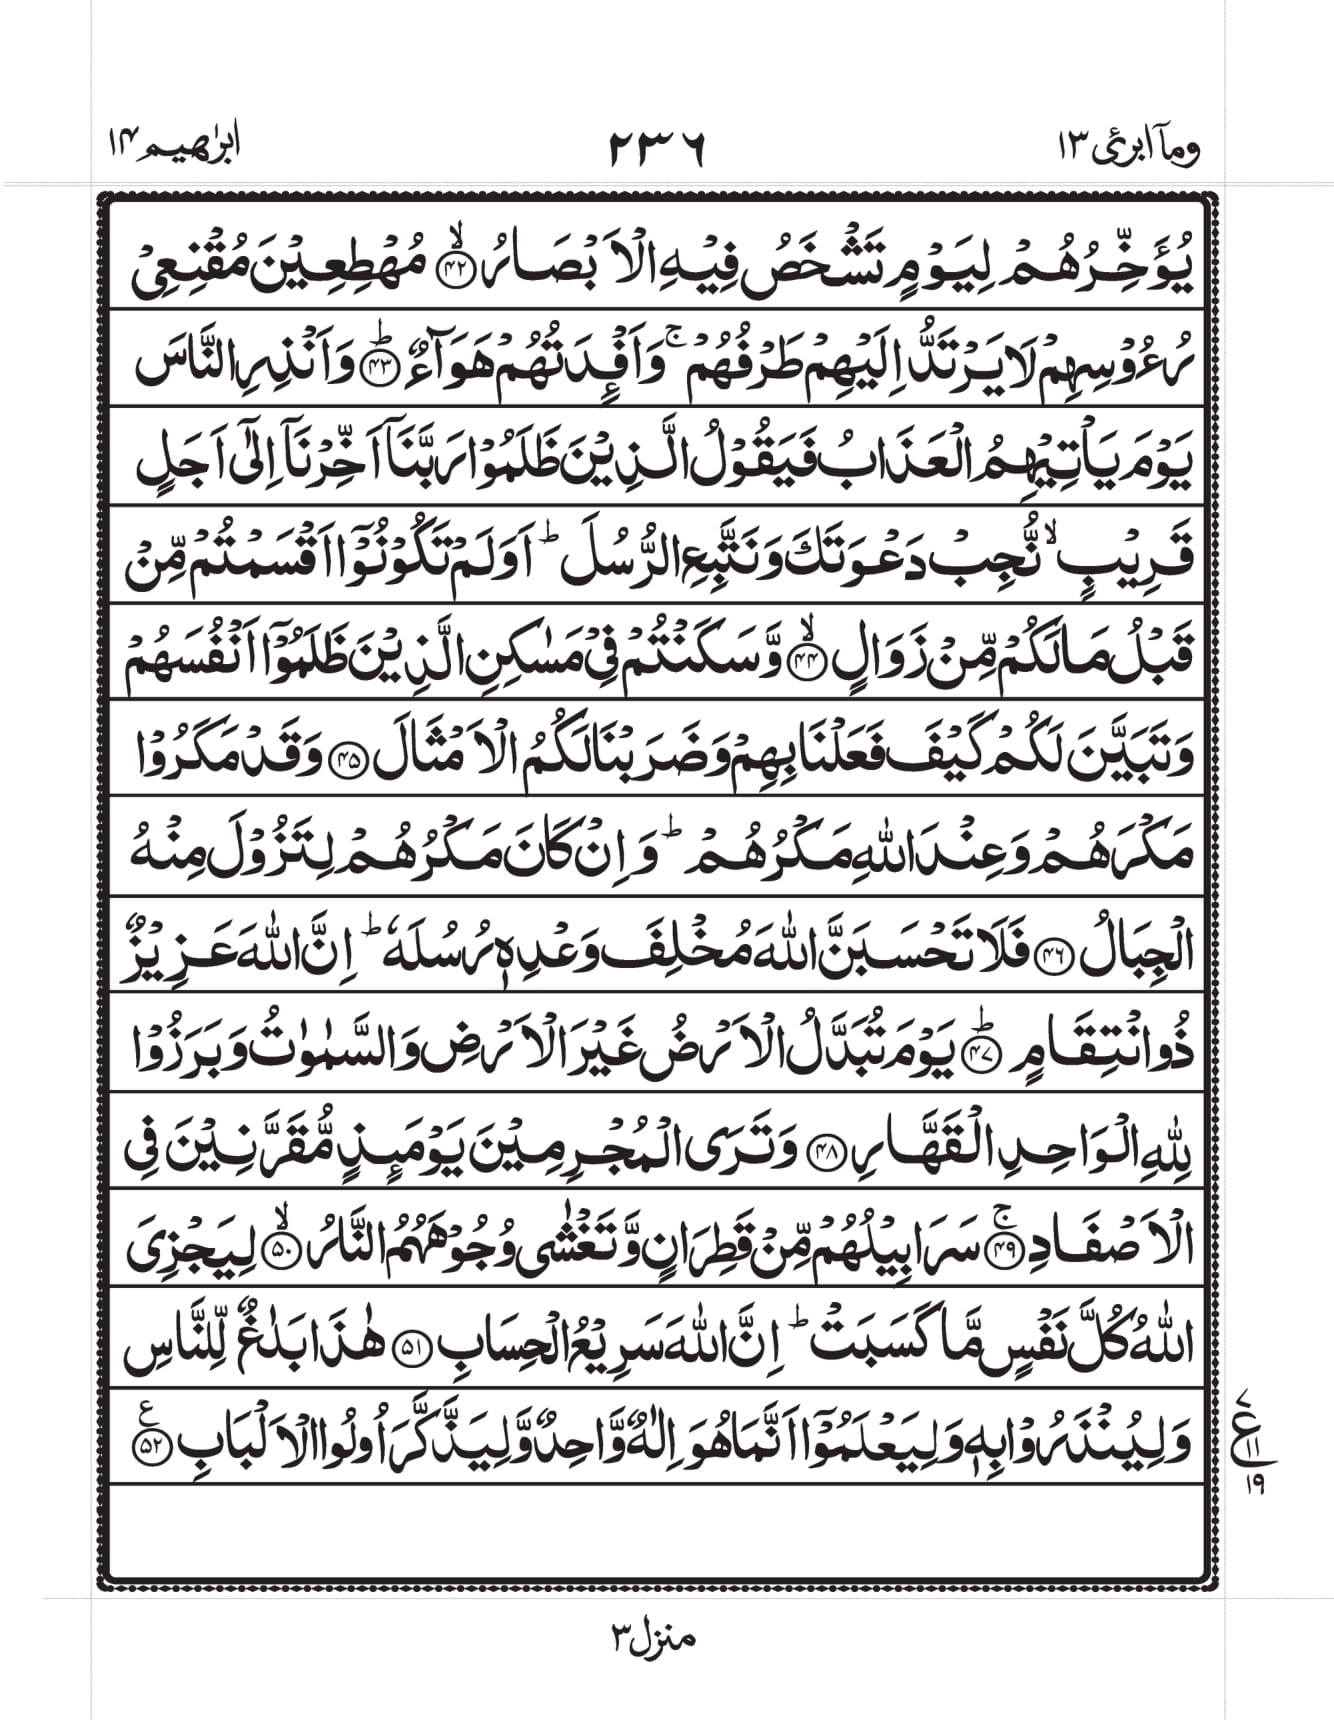 ومآ ابرئ ۱۳
۲۳۶
ابرٰھیم ۱۴
يُؤَخِّرُهُمْ لِيَوْمٍ تَشْخَصُ فِيْهِ الْاَبْصَارُ ﴿۴۲﴾ۙ مُهْطِعِيْنَ مُقْنِعِيْ
رُءُوْسِهِمْ لَا يَرْتَدُّ اِلَيْهِمْ طَرْفُهُمْ ۚ وَاَفْـِٕدَتُهُمْ هَوَآءٌ ﴿۴۳﴾ؕ وَاَنْذِرِ النَّاسَ
يَوْمَ يَاْتِيْهِمُ الْعَذَابُ فَيَقُوْلُ الَّذِيْنَ ظَلَمُوْا رَبَّنَاۤ اَخِّرْنَاۤ اِلٰۤى اَجَلٍ
قَرِيْبٍ ۙ نُّجِبْ دَعْوَتَكَ وَنَتَّبِعِ الرُّسُلَ ؕ اَوَلَمْ تَكُوْنُوْۤا اَقْسَمْتُمْ مِّنْ
قَبْلُ مَا لَكُمْ مِّنْ زَوَالٍ ﴿۴۴﴾ۙ وَّسَكَنْتُمْ فِيْ مَسٰكِنِ الَّذِيْنَ ظَلَمُوْۤا اَنْفُسَهُمْ
وَتَبَيَّنَ لَكُمْ كَيْفَ فَعَلْنَا بِهِمْ وَضَرَبْنَا لَكُمُ الْاَمْثَالَ ﴿۴۵﴾ وَقَدْ مَكَرُوْا
مَكْرَهُمْ وَعِنْدَ اللّٰهِ مَكْرُهُمْ ؕ وَاِنْ كَانَ مَكْرُهُمْ لِتَزُوْلَ مِنْهُ
الْجِبَالُ ﴿۴۶﴾ فَلَا تَحْسَبَنَّ اللّٰهَ مُخْلِفَ وَعْدِهٖ رُسُلَهٗ ؕ اِنَّ اللّٰهَ عَزِيْزٌ
ذُو انْتِقَامٍ ﴿۴۷﴾ؕ يَوْمَ تُبَدَّلُ الْاَرْضُ غَيْرَ الْاَرْضِ وَالسَّمٰوٰتُ وَبَرَزُوْا
لِلّٰهِ الْوَاحِدِ الْقَهَّارِ ﴿۴۸﴾ وَتَرَى الْمُجْرِمِيْنَ يَوْمَىِٕذٍ مُّقَرَّنِيْنَ فِي
الْاَصْفَادِ ﴿۴۹﴾ۚ سَرَابِيْلُهُمْ مِّنْ قَطِرَانٍ وَّتَغْشٰى وُجُوْهَهُمُ النَّارُ ﴿۵۰﴾ۙ لِيَجْزِيَ
اللّٰهُ كُلَّ نَفْسٍ مَّا كَسَبَتْ ؕ اِنَّ اللّٰهَ سَرِيْعُ الْحِسَابِ ﴿۵۱﴾ هٰذَا بَلٰغٌ لِّلنَّاسِ
وَلِيُنْذَرُوْا بِهٖ وَلِيَعْلَمُوْۤا اَنَّمَا هُوَ اِلٰهٌ وَّاحِدٌ وَّلِيَذَّكَّرَ اُولُوا الْاَلْبَابِ ﴿۵۲﴾ ع
۷
ع
۱۱
۱۹
منزل ۳